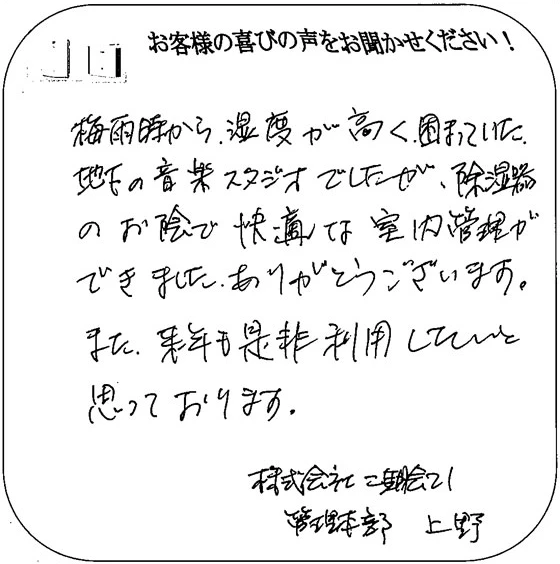 お客様の喜びの声をお聞かせください！
梅雨時から、湿度が高く、困っていた、
地下の音楽スタジオでしたが、除湿器
のお陰で快適な室内管理が
できました。ありがとうございます。
また、来年も是非利用したいと
思っております。
株式会社
管理本部 上野